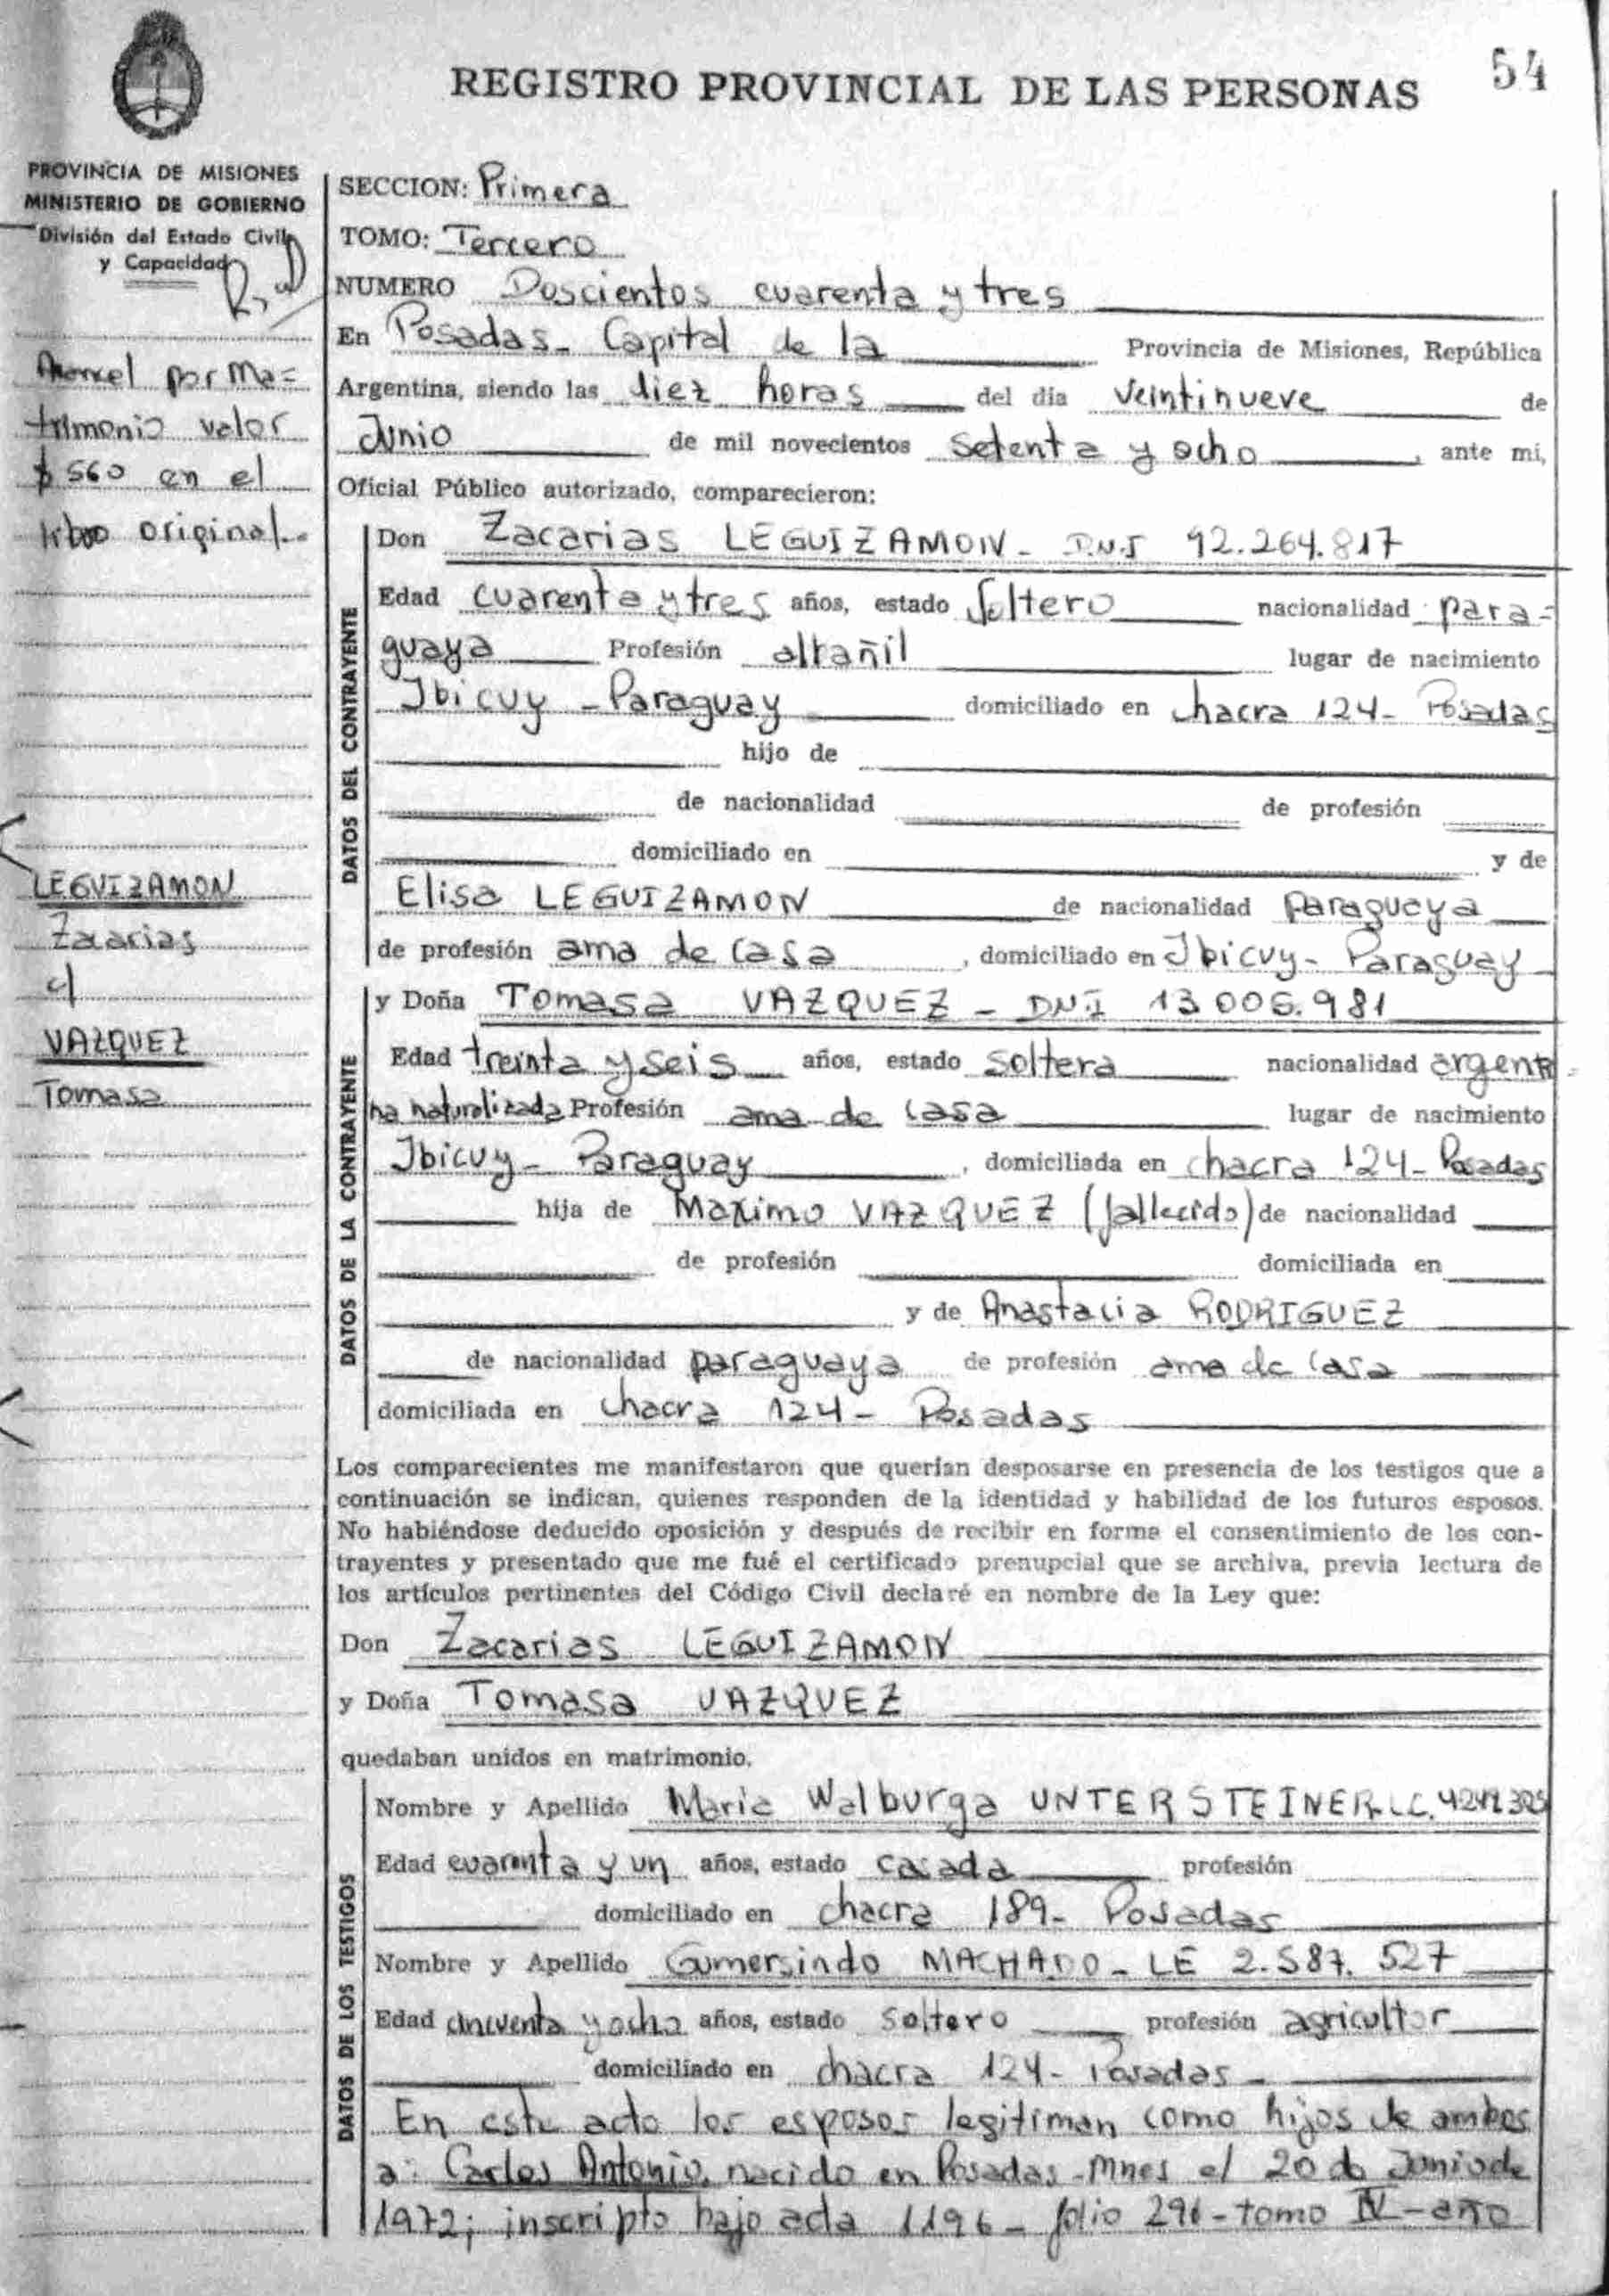 54
REGISTRO PROVINCIAL DE LAS PERSONAS
PROVINCIA DE MISIONES
MINISTERIO DE GOBIERNO
División del Estado Civil
y Capacidad
Arancel por Ma=
trimonio valor
$ 560 en el
libro original.-
LEGUIZAMON
Zacarias
c/
VAZQUEZ
Tomasa
SECCION: Primera
TOMO: Tercero
NUMERO Doscientos cuarenta y tres
En Posadas - Capital de la Provincia de Misiones, República
Argentina, siendo las diez horas del día veintinueve de
Junio de mil novecientos setenta y ocho, ante mi,
Oficial Público autorizado, comparecieron:
DATOS DEL CONTRAYENTE
Don Zacarias LEGUIZAMON - D.N.I 92.264.817
Edad cuarenta y tres años, estado soltero nacionalidad para=
guaya Profesión albañil lugar de nacimiento
Ibicuy - Paraguay domiciliado en chacra 124 - Posadas
hijo de
de nacionalidad de profesión
domiciliado en y de
Elisa LEGUIZAMON de nacionalidad paraguaya
de profesión ama de casa, domiciliado en Ibicuy - Paraguay
DATOS DE LA CONTRAYENTE
y Doña Tomasa VAZQUEZ - DN.I 13.006.981
Edad treinta y seis años, estado soltera nacionalidad argenti=
na naturalizada Profesión ama de casa lugar de nacimiento
Ibicuy - Paraguay, domiciliada en chacra 124 - Posadas
hija de Maximo VAZQUEZ (fallecido) de nacionalidad
de profesión domiciliada en
y de Anastacia RODRIGUEZ
de nacionalidad paraguaya de profesión ama de casa
domiciliada en chacra 124 - Posadas
Los comparecientes me manifestaron que querían desposarse en presencia de los testigos que a
continuación se indican, quienes responden de la identidad y habilidad de los futuros esposos.
No habiéndose deducido oposición y después de recibir en forma el consentimiento de los con-
trayentes y presentado que me fué el certificado prenupcial que se archiva, previa lectura de
los artículos pertinentes del Código Civil declaré en nombre de la Ley que:
Don Zacarias LEGUIZAMON
y Doña Tomasa VAZQUEZ
quedaban unidos en matrimonio.
DATOS DE LOS TESTIGOS
Nombre y Apellido Maria Walburga UNTERSTEINER L.C.
Edad cuarenta y un años, estado casada profesión
domiciliado en chacra 189 - Posadas
Nombre y Apellido Gumersindo MACHADO - LE 2.587.527
Edad cincuenta y ocho años, estado soltero profesión agricultor
domiciliado en chacra 124 - Posadas -
En este acto los esposos legitiman como hijos de ambos
a: Carlos Antonio, nacido en Posadas - Mnes el 20 de Junio de
1972; inscripto bajo acta 1196 - folio 296 - tomo IV - año